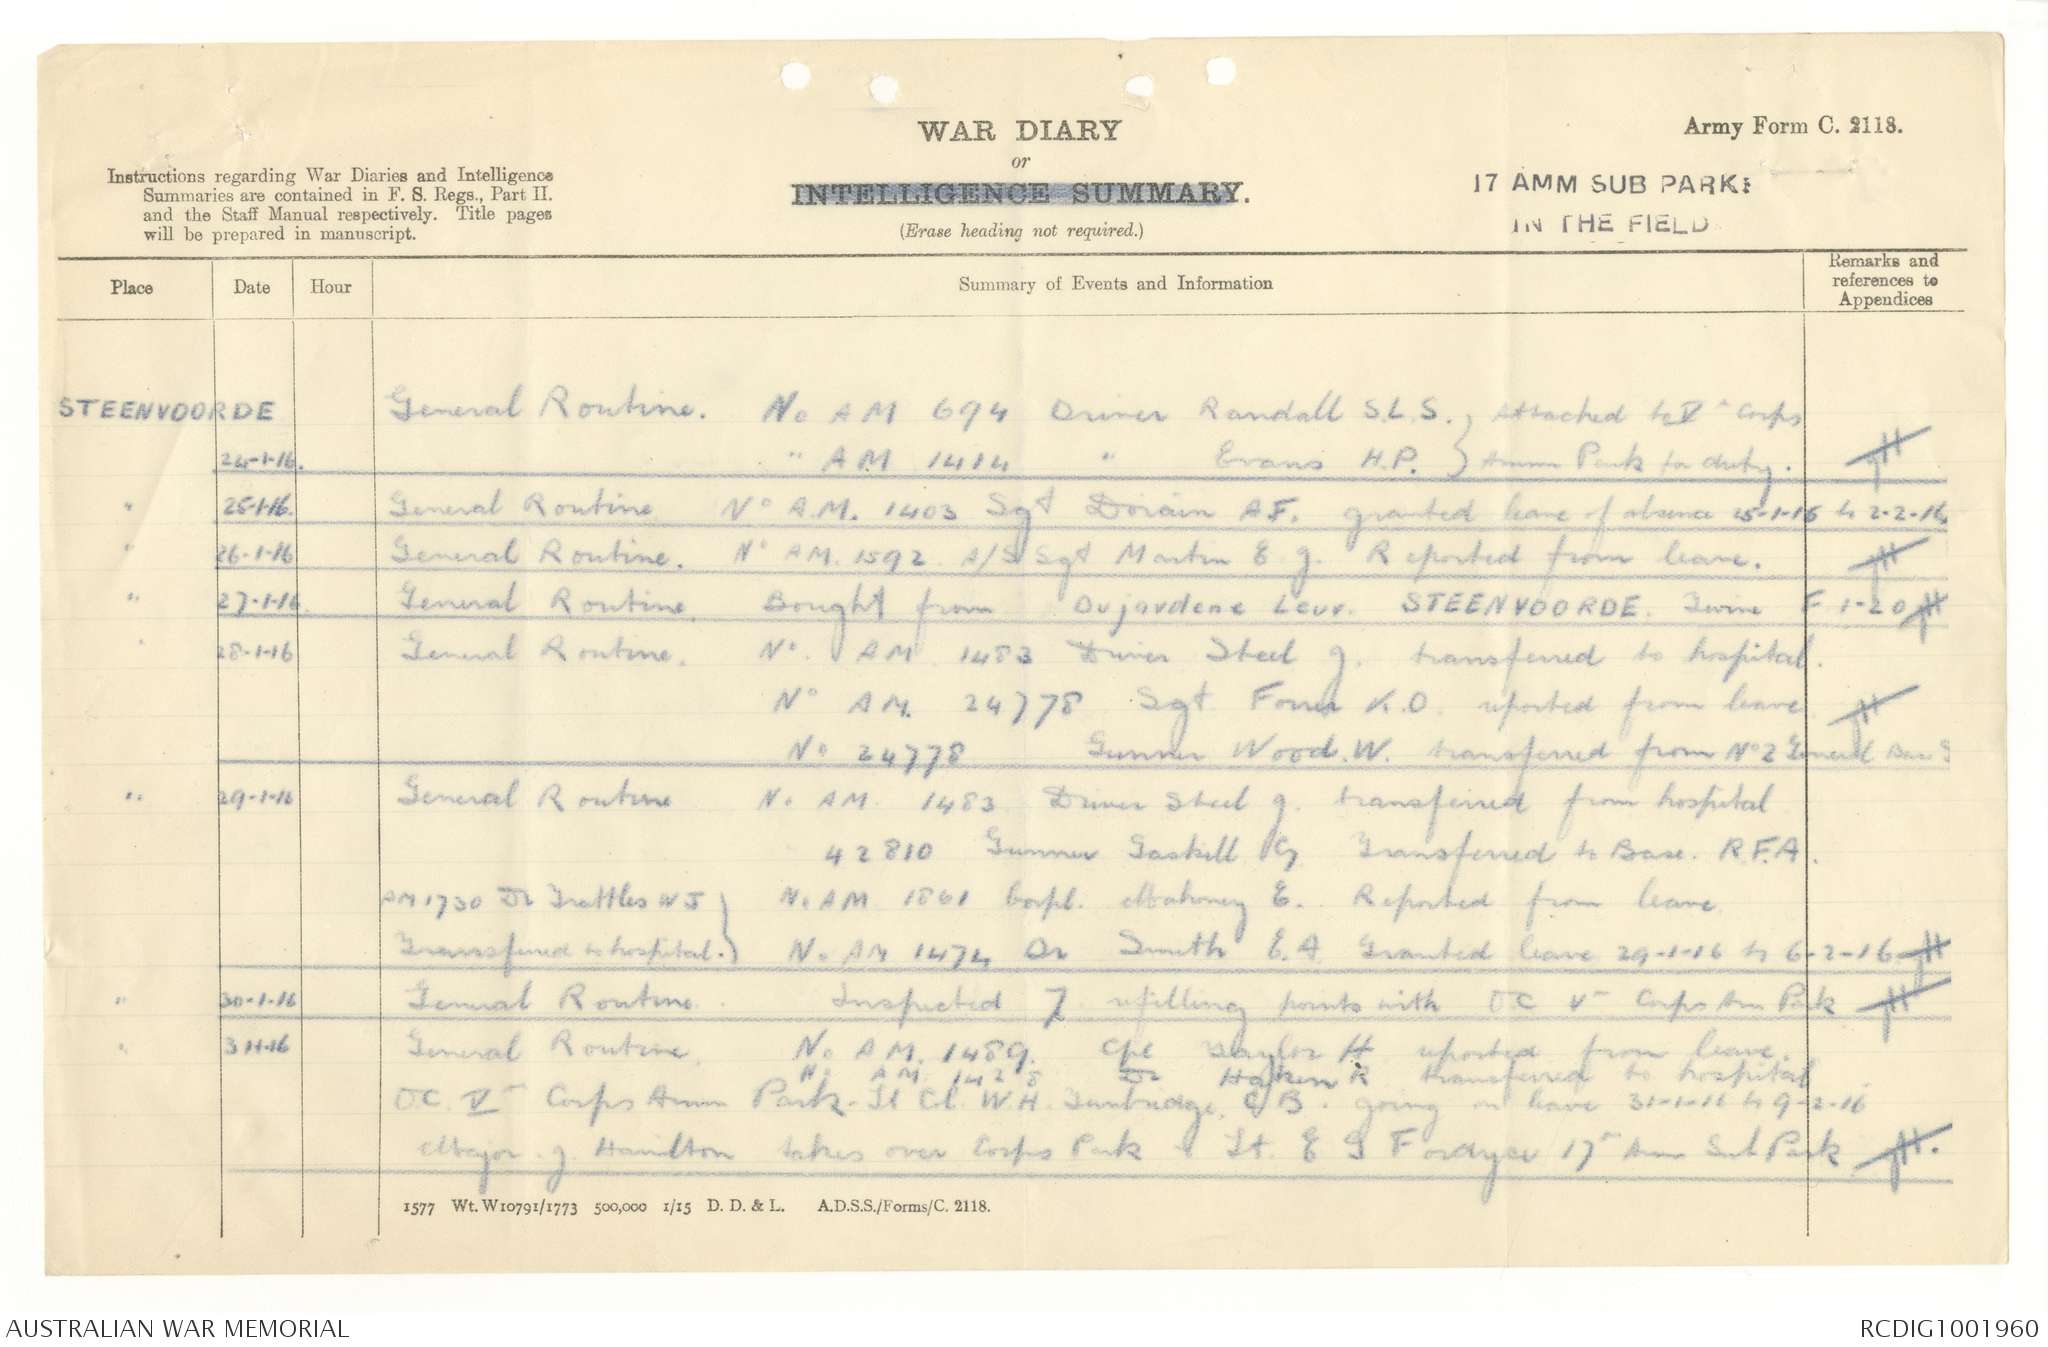 WAR DIARY
or
INTELLIGENCE SUMMARY.
(Erase heading not required.)
Army Form C. 2118.
Instructions regarding War Diaries and Intelligence
Summaries are contained in F. S. Regs., Part II.
and the Staff Manual respectively. Title pages
will be prepared in manuscript.
17 AMM SUB PARK
IN THE FIELD
Place Date Hour Summary of Events and Information Remarks and references to Appendices
STEENVOORDE General Routine. No AM 694 Driver Randall S.L.S. } Attached to V Corps
24-1-16. " AM 1414 " Evans H.P. } Amm Park for duty.
" 25-1-16. General Routine No A.M. 1403 Sgt Dorain A.F. granted leave of absence 25-1-16 to 2-2-16
" 26-1-16 General Routine. No AM. 1592 A/S Sgt Martin E G. Reported from leave.
" 27-1-16 General Routine Bought from Dujardene Leur. STEENVOORDE. Twine F 1-20
" 28-1-16 General Routine. No. AM 1483 Driver Steel J. transferred to hospital.
No AM. 24778 Sgt K.O. reported from leave
No 24778 Gunner Wood. W. transferred from No 2 General Base
" 29-1-16 General Routine No AM. 1483 Driver Steel J. transferred from hospital
42810 Gunner Gaskill G Transferred to Base. R.F.A.
AM 1730 Dr Trattles W J } No AM 1861 Corpl. Mahoney E. Reported from leave
Transferred to hospital. } No AM 1474 Dr Smith E.A Granted leave 29-1-16 to 6-2-16
" 30-1-16 General Routine. Inspected 7 refilling points with OC V Corps Am Park
" 31-1-16 General Routine. No AM. 1489. Cpl Taylor H reported from leave.
No AM. 1428 Dr R transferred to hospital
OC. V Corps Amm Park - Lt Col. W.H. Tunbridge. C.B. going on leave 31-1-16 to 9-2-16
Major J. Hamilton takes over Corps Park & Lt. E G Fordyce 17 Amm Sub Park
1577 Wt. W10791/1773 500,000 1/15 D. D. & L. A.D.S.S./Forms/C. 2118.
AUSTRALIAN WAR MEMORIAL
RCDIG1001960